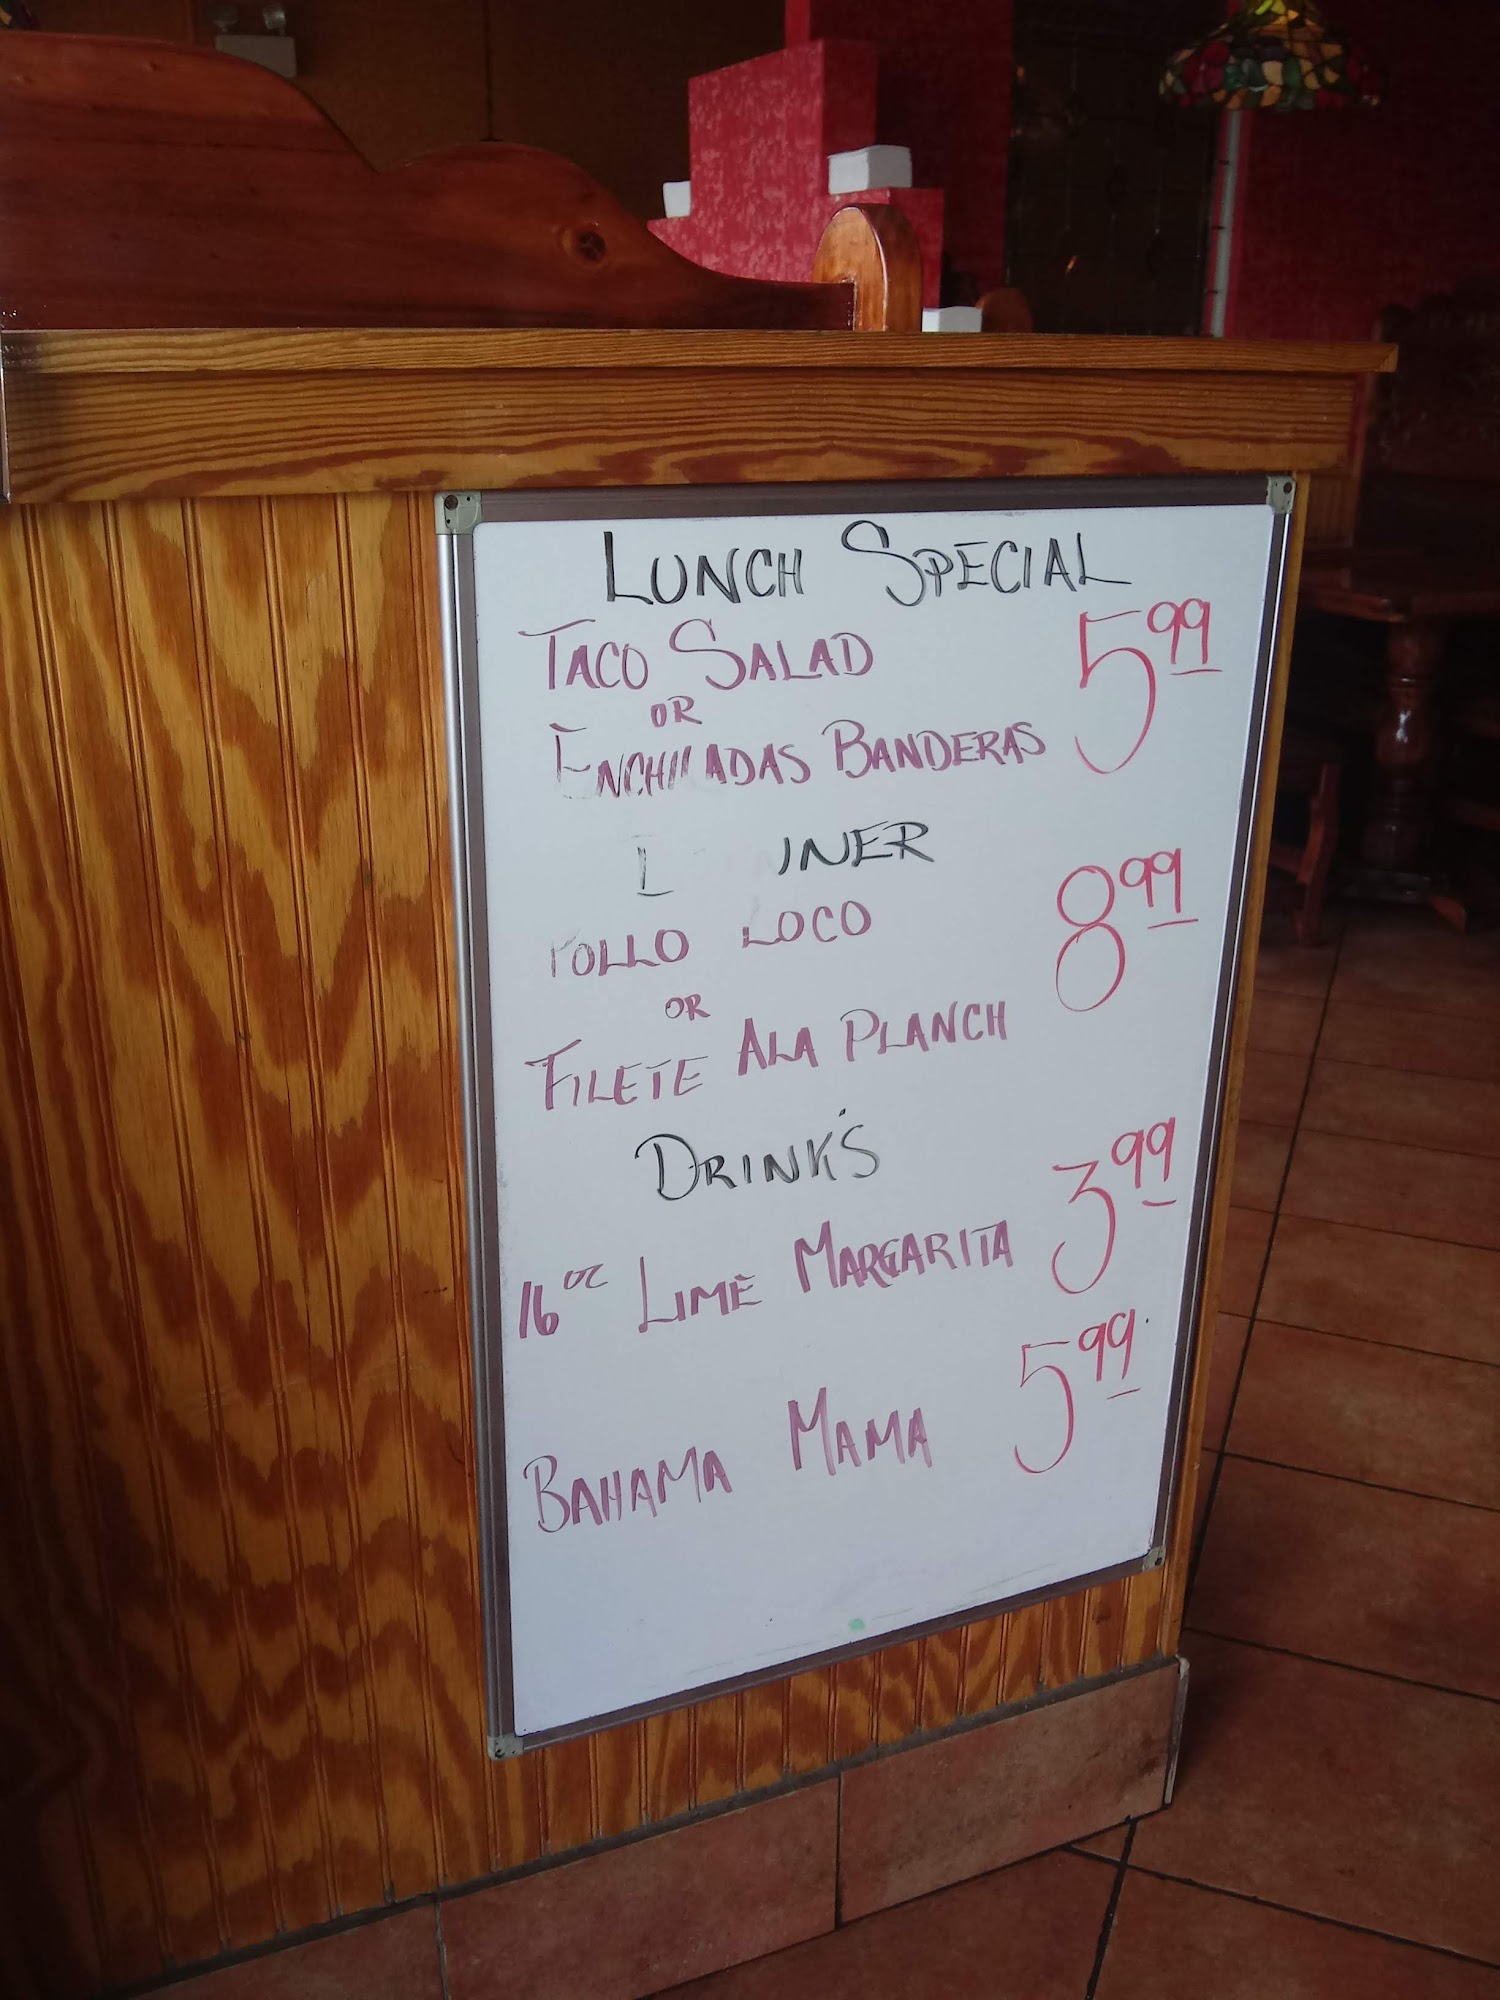 LUNCH SPECIAL
TACO SALAD 5.99
OR
ENCHILADAS BANDERAS
INER
POLLO LOCO 8.99
OR
FILETE ALA PLANCH
DRINK'S
16 oz LIME MARGARITA 3.99
BAHAMA MAMA 5.99